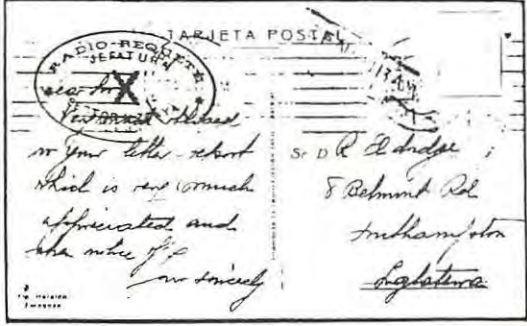 TARJETA POSTAL
RADIO-REQUETÉ
JEFATURA
X
Dear Sir
Very pleased
in your letter-report
which is very much
appreciated and
taken notice of
your sincerely
Sr. D. R Eldridge
8 Belmont Rd
Southampton
Inglaterra